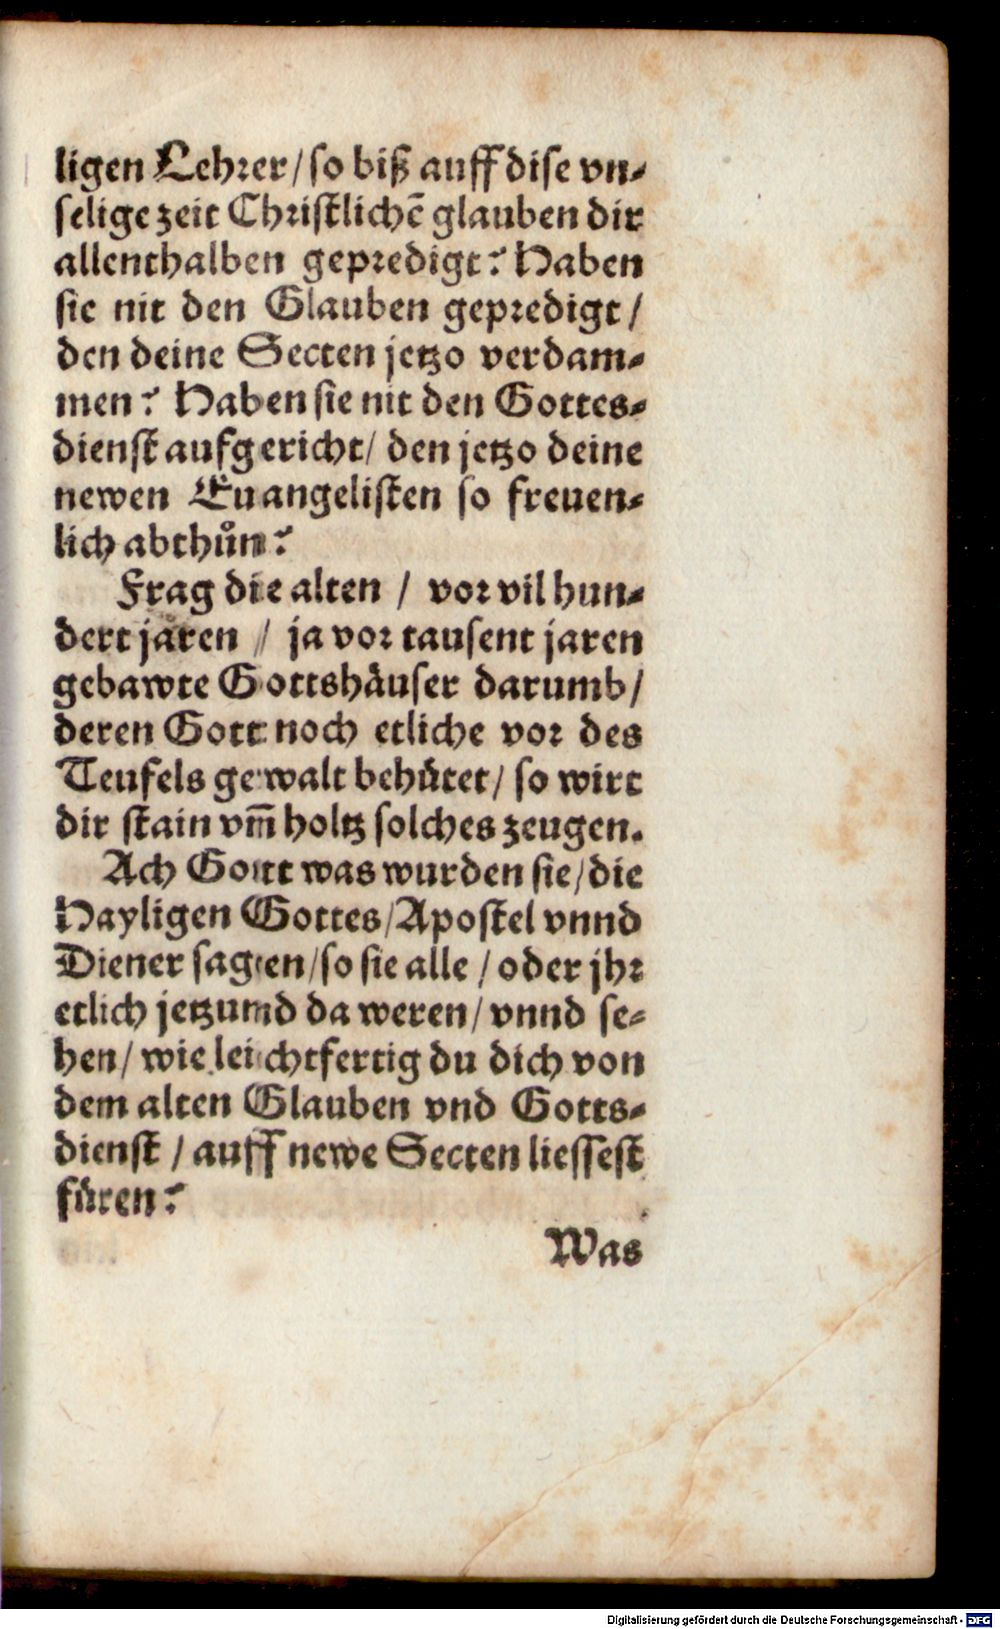 ligen Lehrer/ so biß auff dise vn-
selige zeit Christlichē glauben dir
allenthalben gepredigt? Haben
sie nit den Glauben gepredigt/
den deine Secten jetzo verdam-
men? Haben sie nit den Gottes-
dienst aufgericht/ den jetzo deine
newen Euangelisten so freuen-
lich abthůn?
Frag die alten / vor vil hun-
dert jaren / ja vor tausent jaren
gebawte Gottshäuser darumb/
deren Gott noch etliche vor des
Teufels gewalt behütet/ so wirt
dir stain vm̄ holtz solches zeugen.
Ach Gott was wurden sie/ die
Hayligen Gottes/ Apostel vnnd
Diener sagen/ so sie alle / oder jhr
etlich jetzund da weren/ vnnd se-
hen/ wie leichtfertig du dich von
dem alten Glauben vnd Gotts-
dienst / auff newe Secten liessest
füren?
Was
Digitalisierung gefördert durch die Deutsche Forschungsgemeinschaft - DFG